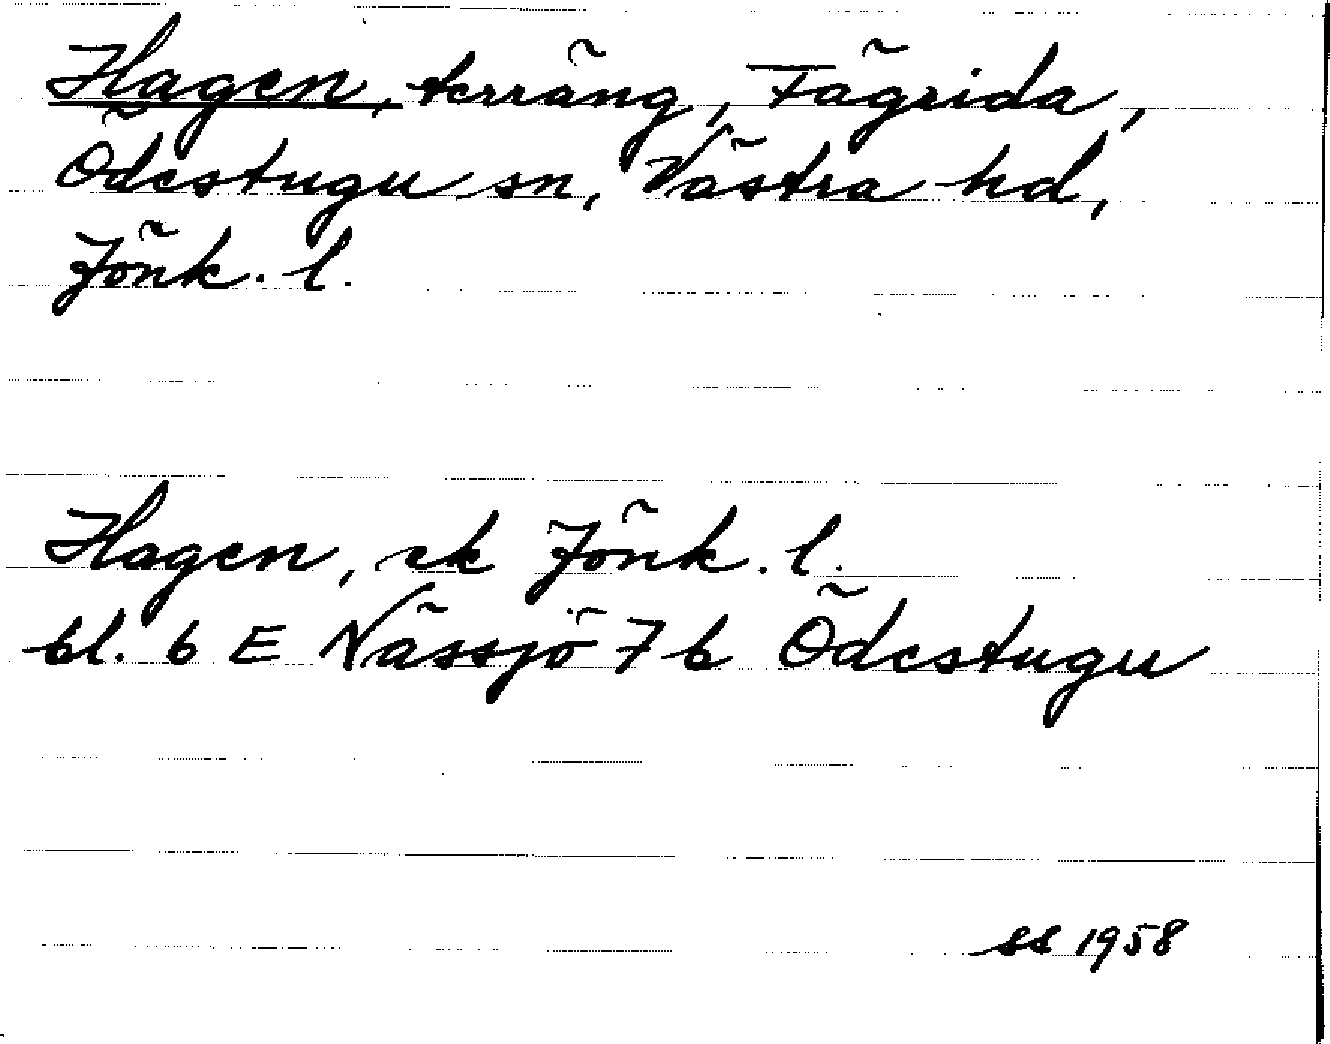 Hagen, terräng, Fägrida,
Ödestugu sn, Västra hd,
Jönk. l.
Hagen, ek Jönk. l.
bl. 6 E Nässjö 7 b Ödestugu
SS 1958